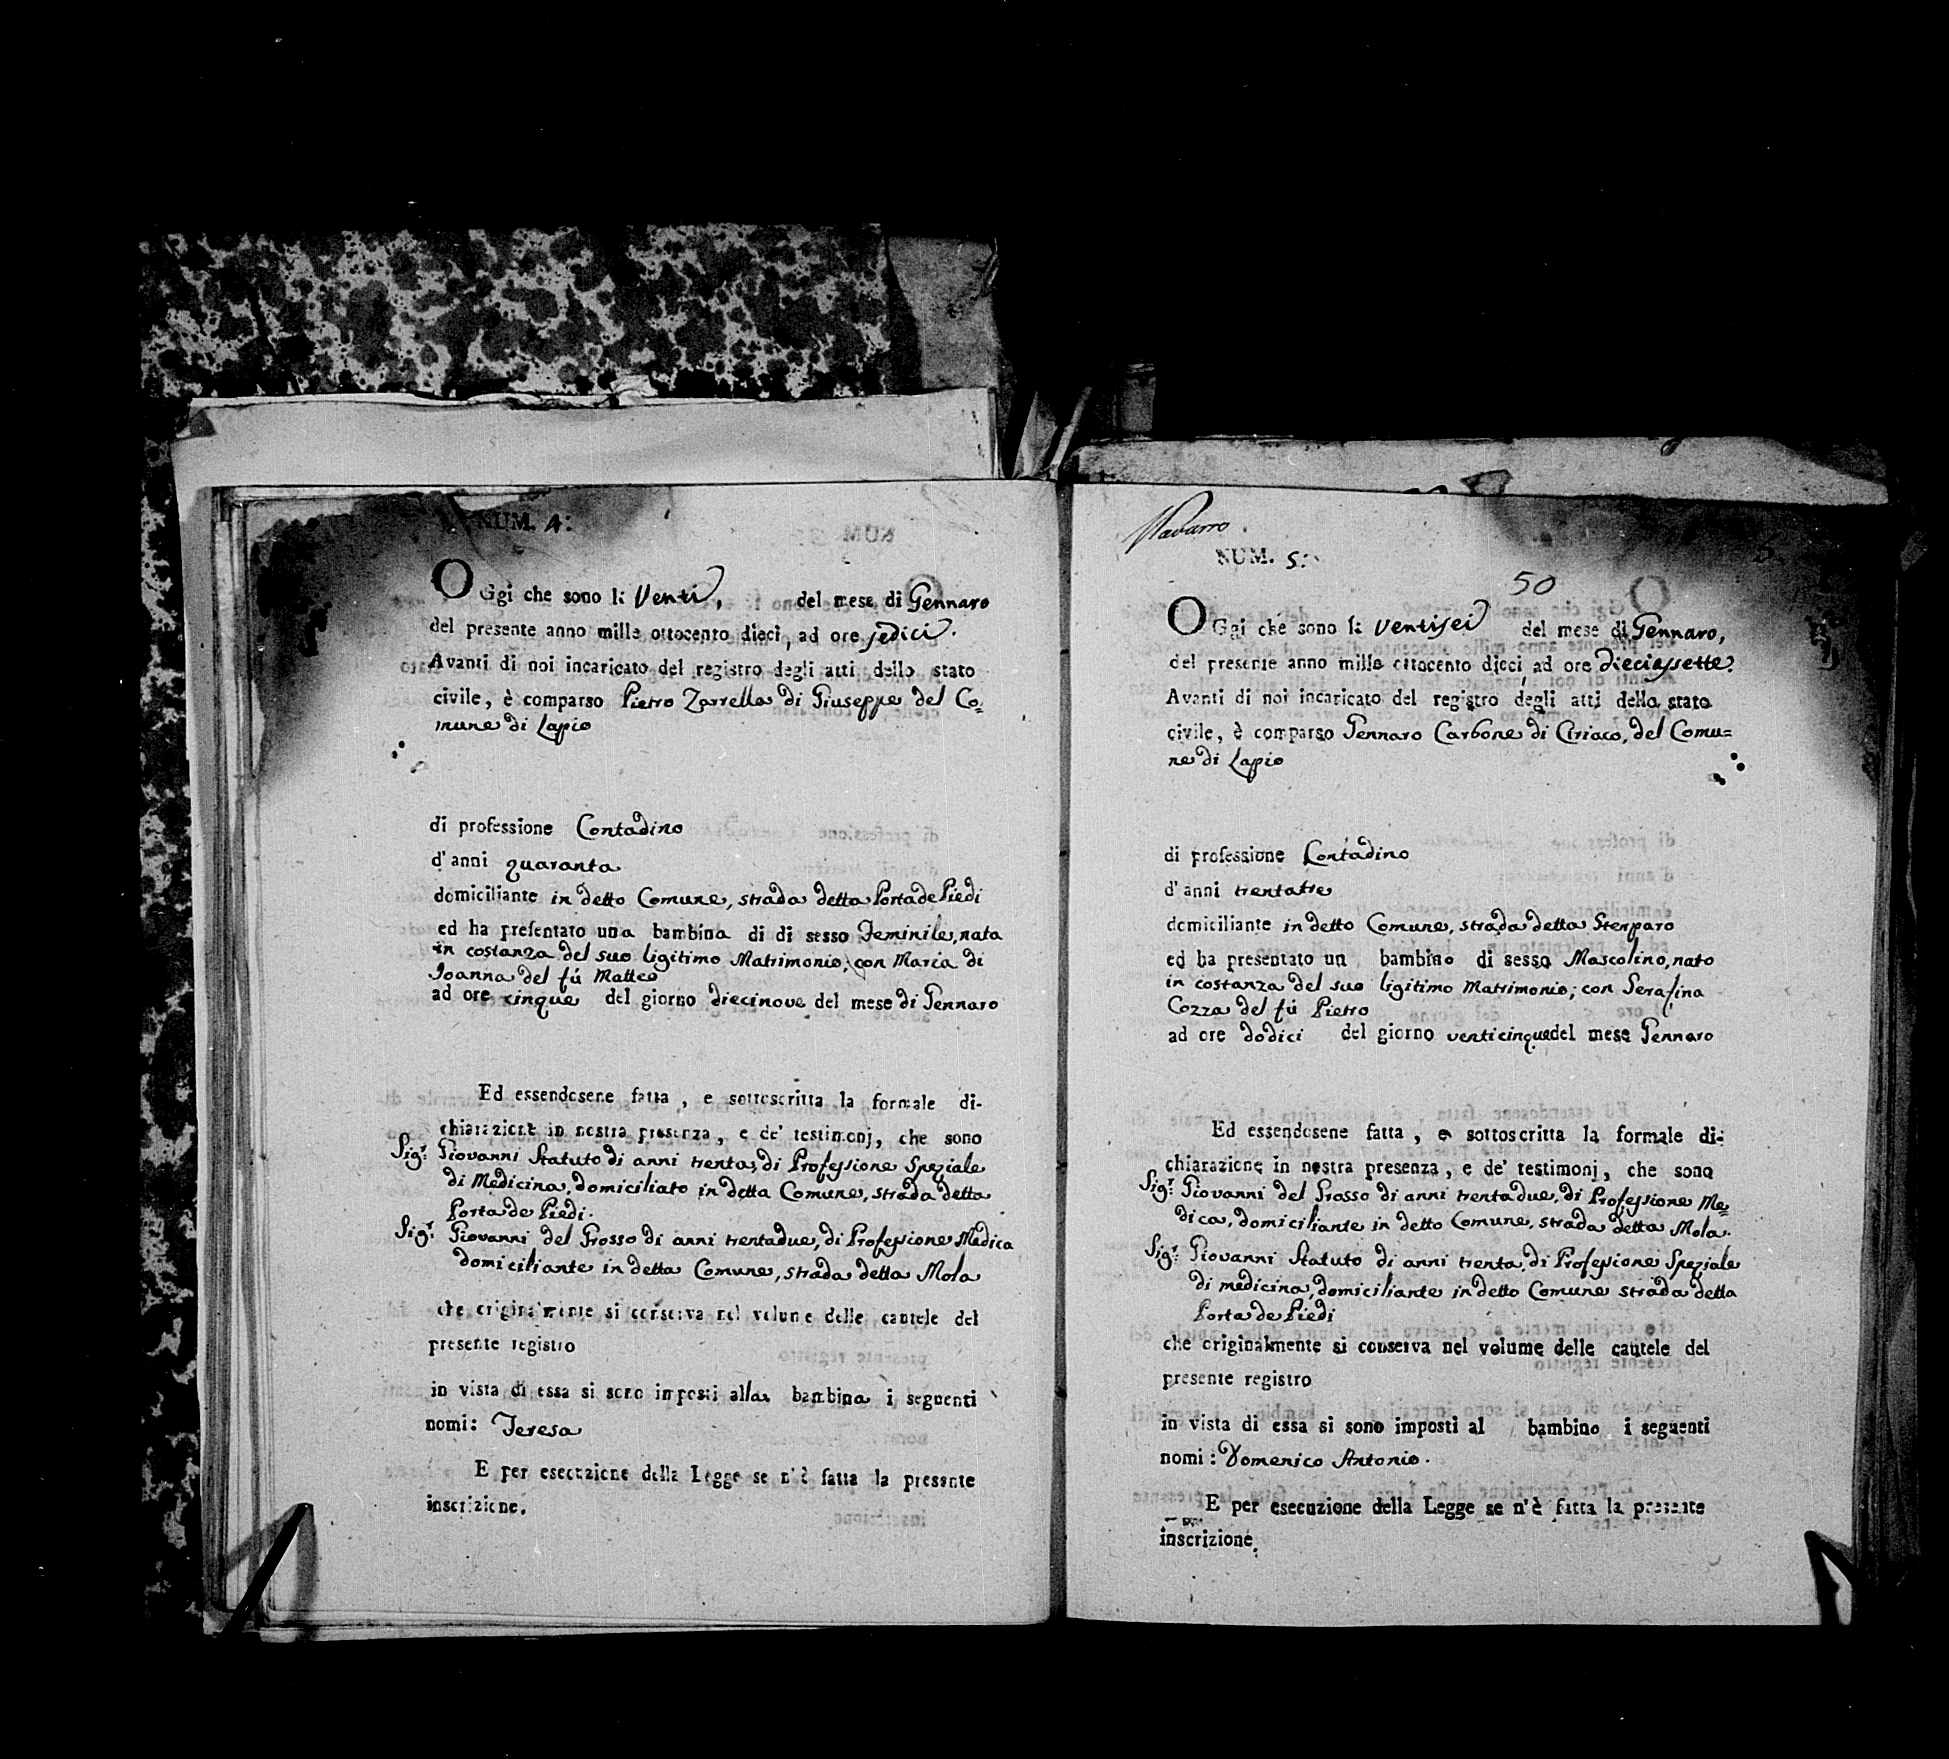 NUM. 4:
OGgi che sono li Venti, del mese di Gennaro
del presente anno mille ottocento dieci, ad ore sedici.
Avanti di noi incaricato del registro degli atti dello stato
civile, è comparso Pietro Zarrella di Giuseppe del Co=
mune di Lapio
di professione Contadino
d'anni quaranta
domiciliante in detto Comune, strada detta Porta de Piedi
ed ha presentato una bambina di di sesso Feminile, nata
in costanza del suo ligitimo Matrimonio; con Maria di
Ioanna del fú Matteo
ad ore cinque del giorno diecinove del mese di Gennaro
Ed essendosene fatta, e sottoscritta la formale di-
chiarazione in nostra presenza, e de' testimonj, che sono
Sigr. Giovanni Statuto di anni trenta, di Professione Speziale
di Medicina, domiciliato in detta Comune, strada detta
Porta de Piedi.
Sigr. Giovanni del Grosso di anni trentadue, di Professione Medica
domiciliante in detta Comune, strada detta Mola
che originalmente si conserva nel volume delle cautele del
presente registro
in vista di essa si sono imposti alla bambina i seguenti
nomi: Teresa
E per esecuzione della Legge se n'è fatta la presente
inscrizione.
Navarro.
NUM. 5:
5
50
OGgi che sono li Ventisei del mese di Gennaro,
del presente anno mille ottocento dieci ad ore dieciassette.
Avanti di noi incaricato del registro degli atti dello stato
civile, è comparso Gennaro Carbone di Ciriaco, del Comu=
ne di Lapio
di professione Contadino
d'anni trentatre
domiciliante in detto Comune, strada detta Sterparo
ed ha presentato un bambino di sesso Mascolino, nato
in costanza del suo ligitimo Matrimonio; con Serafina
Cozza del fú Pietro
ad ore dodici del giorno venticinque del mese Gennaro
Ed essendosene fatta, e sottoscritta la formale di-
chiarazione in nostra presenza, e de' testimonj, che sono
Sigr. Giovanni del Grosso di anni trentadue, di Professione Me=
dica, domiciliante in detto Comune, strada detta Mola.
Sigr. Giovanni Statuto di anni trenta, di Professione Speziale
di medicina, domiciliante in detto Comune strada detta
Porta de Piedi
che originalmente si conserva nel volume delle cautele del
presente registro
in vista di essa si sono imposti al bambino i seguenti
nomi: Domenico Antonio.
E per esecuzione della Legge se n'è fatta la presente
inscrizione.